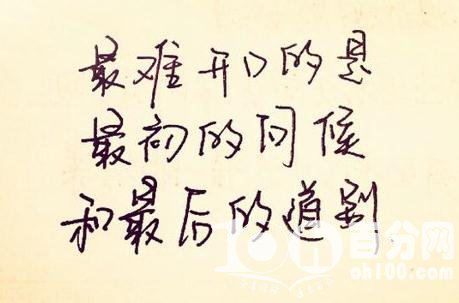 最难开口的是
最初的问候
和最后的道别
百分网
oh100.com